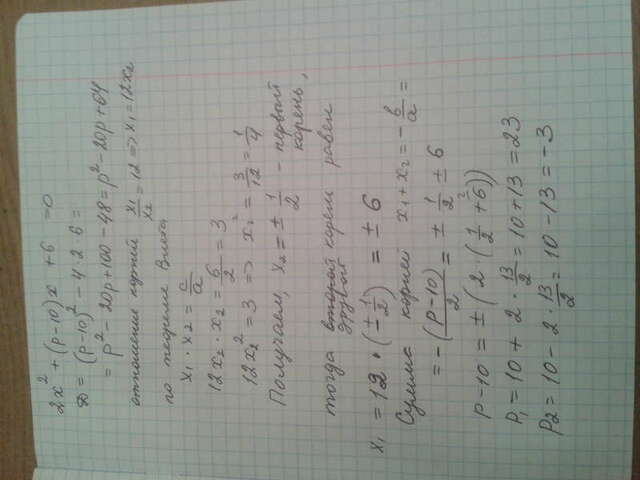 2x² + (p-10)x + 6 = 0
D = (p-10)² - 4·2·6 =
= p² - 20p + 100 - 48 = p² - 20p + 64
отношение корней x₁/x₂ = 12 => x₁ = 12x₂
по теореме Виета
x₁ · x₂ = c/a
12x₂ · x₂ = 6/2 = 3
12x₂² = 3 => x₂² = 3/12 = 1/4
Получаем, x₂ = ± 1/2 - первый корень,
тогда второй корень равен
другой
x₁ = 12 · (± 1/2) = ± 6
Сумма корней x₁ + x₂ = - b/a =
= - (p-10)/2 = ± 1/2 ± 6
p - 10 = ± (2 · (1/2 + 6))
p₁ = 10 + 2 · 13/2 = 10 + 13 = 23
p₂ = 10 - 2 · 13/2 = 10 - 13 = -3